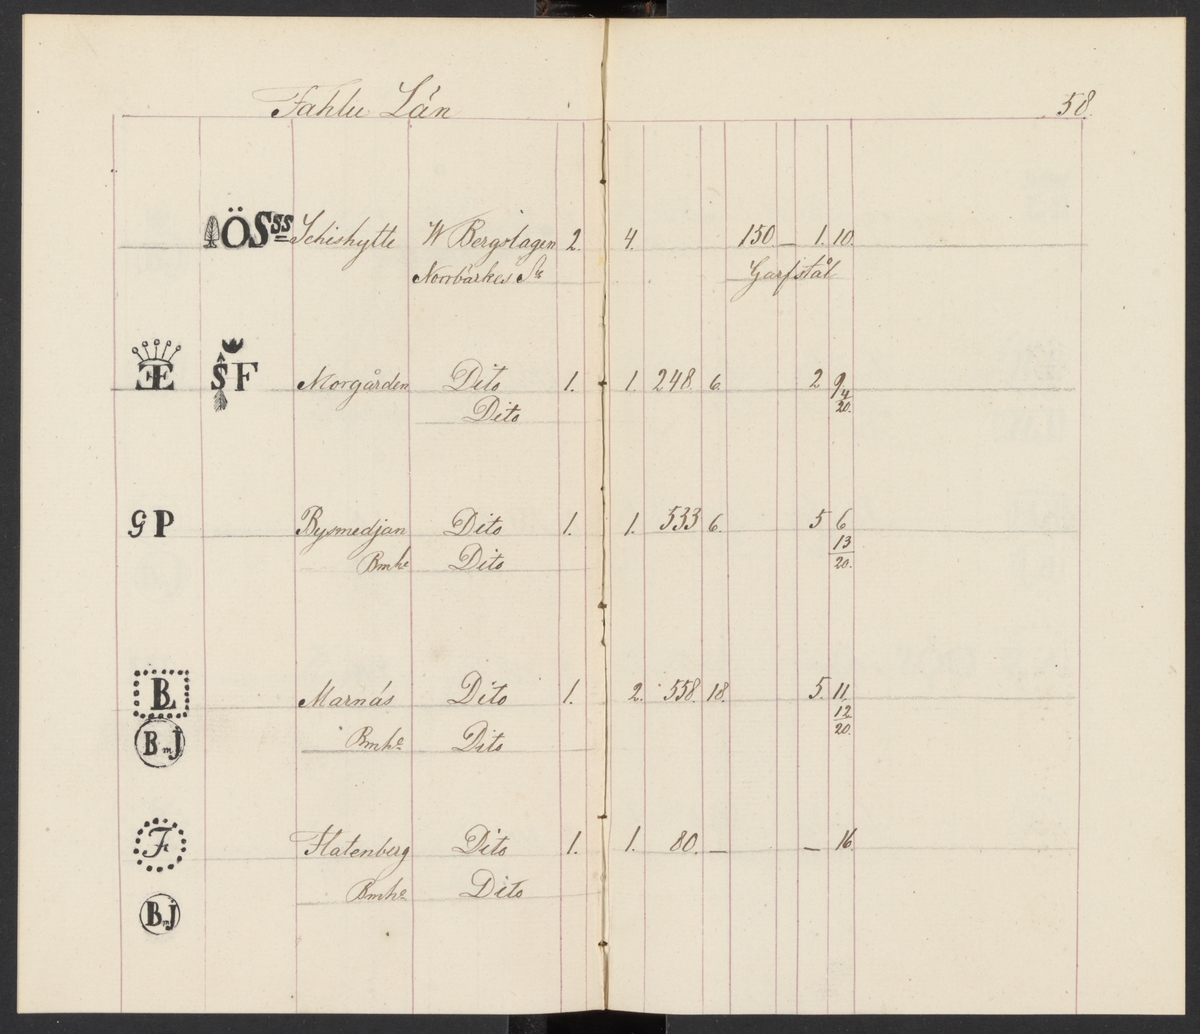 Fahlu Län 58.
ÖSss Schishytte W Bergslagen 2. 4. 150 — 1. 10.
Norrbärkes Sn Garfstål
E SF Morgården Dito 1. 1. 248. 6. 2 9
Dito 4/20.
GP Bysmedjan Dito 1. 1. 533 6. 5 6
Bmhe Dito 13/20.
BL Marnäs Dito 1. 2. 558. 18. 5. 11.
BmJ Bmhe Dito 12/20.
F Flatenberg Dito 1. 1. 80. — — 16.
Bmhe Dito
BmJ